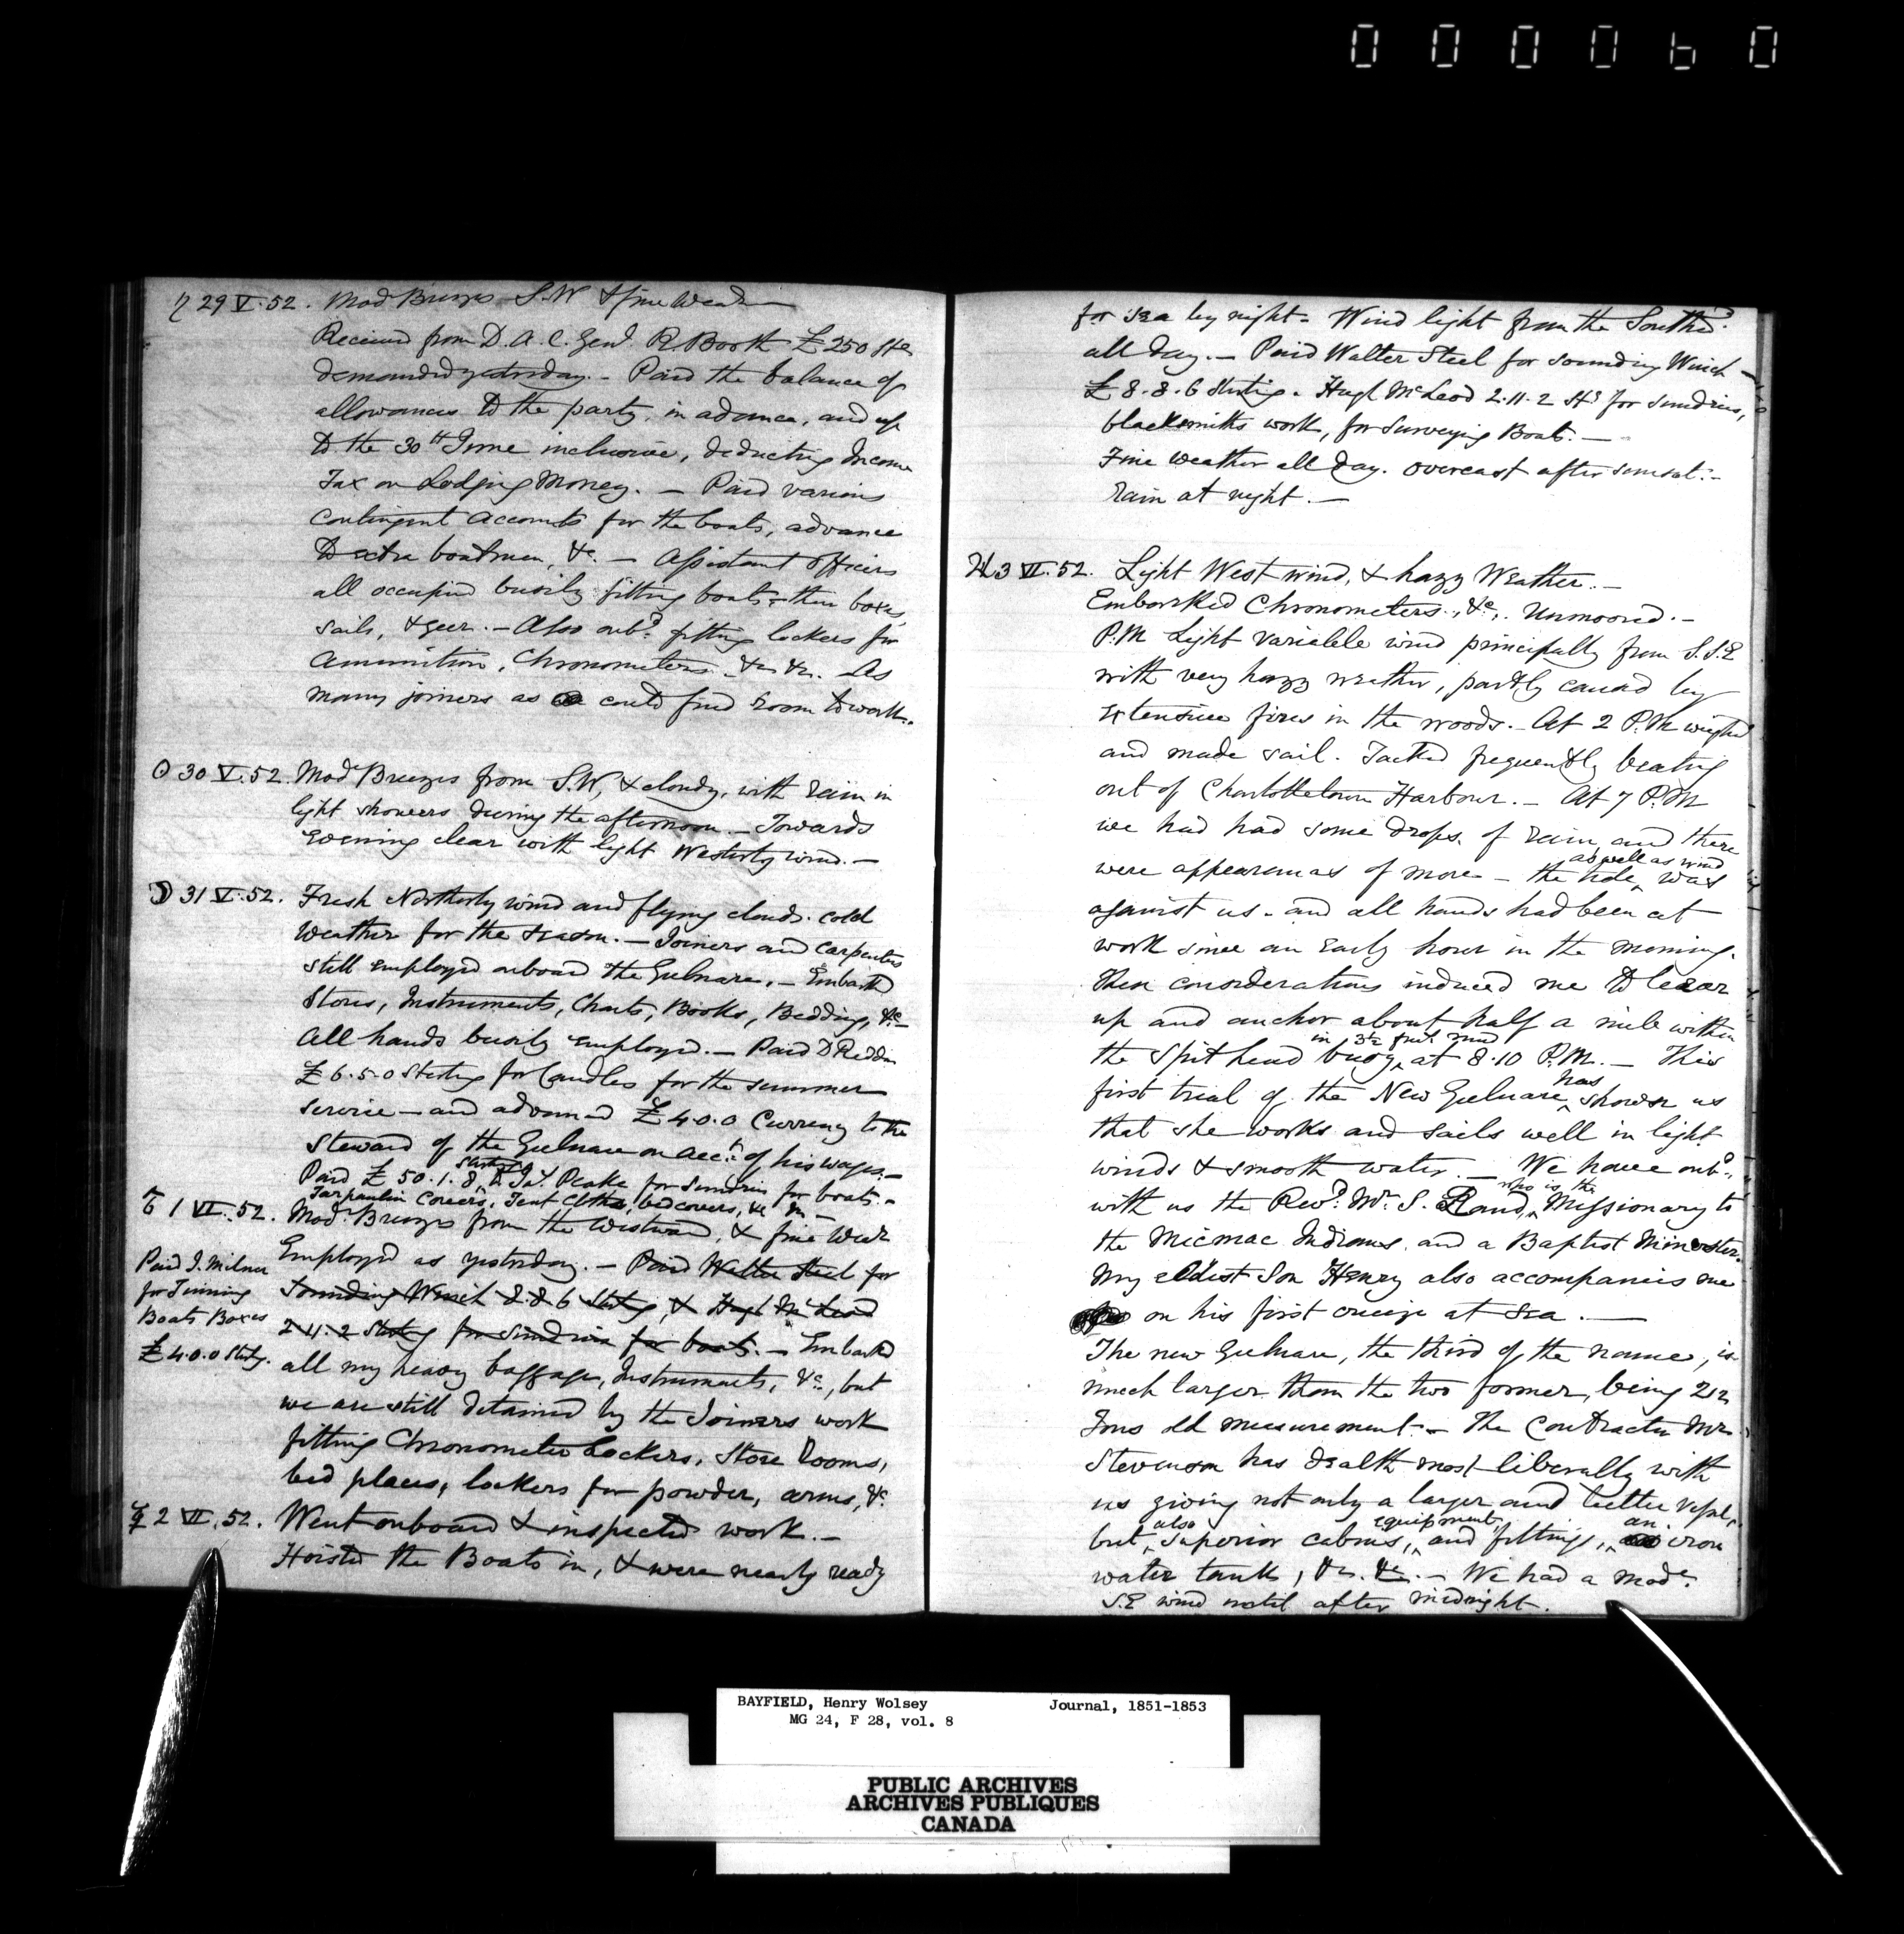 0 0 0 0 6 0
♄ 29 V. 52. Mod Breezes S.W & fine Weather
Received from D. A. C. Genl R Booth £250 Stg
demanded yesterday. - Paid the balance of
allowances to the party, in advance, and up
to the 30th June inclusive, deducting Income
Tax on Lodging Money. - Paid various
Contingent Accounts for the boats, advance
to extra boatmen, &c. - Assistant Officers
all occupied busily fitting boats, their boxes,
sails, & geer. - Also onbd fitting lockers for
Ammunition, Chronometers &c &c. As
many joiners as could find room to work.
☉ 30 V. 52. Mod Breezes from S.W, & cloudy, with rain in
light showers during the afternoon. - Towards
Evening clear with light Westerly wind. -
☽ 31 V. 52. Fresh Northerly wind and flying clouds. Cold
Weather for the season. - Joiners and Carpenters
still employed onboard the Gulnare. - Embarked
Stores, Instruments, Charts, Books, Bedding, &c -
All hands busily employed. - Paid D Reddin
£6.5.0 Sterling for Candles for the summer
service - and advanced £4.0.0 Currency to the
Steward of the Gulnare on acct of his wages. -
Paid £50.1.8 Sterling to Jas. Peake for sundries for boats. -
Tarpaulin Covers, Tent Cloths, bedcovers, &c
♂ 1 VI. 52. Mod. Breezes from the Westward, & fine Wear
Employed as yesterday. - Paid Walter Steel for
Sounding Winch 8.8.6 Sterlg, & Hugh McLeod
2.11.2 Sterlg for sundries for boats. - Embarked
Paid J. Milner
for Tinning
Boats Boxes
£4.0.0 Sterlg.
all my heavy baggage, Instruments, &c., but
we are still detained by the Joiners work
fitting Chronometer Lockers, Store Rooms,
bed places, lockers for powder, arms, &c
☿ 2 VI. 52. Went onboard & inspected work. -
Hoisted the Boats in, & were nearly ready
for sea by night. Wind light from the Southd.
all day. - Paid Walter Steel for sounding Winch -
£8.8.6 Sterlig. Hugh McLeod 2.11.2 Stg for sundries,
blacksmiths work, for Surveying Boats. -
Fine Weather all day. Overcast after sunset. -
Rain at night. -
♃ 3 VI. 52. Light West wind, & hazy Weather. -
Embarked Chronometers, &c. Unmoored. -
P.M Light variable wind principally from S.S.E
with very hazy weather, partly caused by
extensive fires in the woods. - At 2 P.M weighed
and made sail. Tacked frequently beating
out of Charlottetown Harbour. - At 7 P.M
we had had some drops of rain, and there
were appearances of more - the tide, as well as wind was
against us - and all hands had been at
work since an early hour in the morning.
These considerations induced me to bear
up and anchor about half a mile within
the Spit head buoy, in 3½ fms mud at 8.10 P.M. - This
first trial of the New Gulnare has shown us
that she works and sails well in light
winds & smooth water. - We have onbd.
with us the Revd. Mr. S. Rand, who is the Missionary to
the Micmac Indians, and a Baptist Minister.
My eldest Son Henry also accompanies me
on his first cruize at sea. -
The new Gulnare, the third of the name, is
much larger than the two former, being 212
Tons old measurement. - The Contractor Mr.
Stevenson has dealth most liberally with
us giving not only a larger and better vessel,
but also superior cabins, equipment, and fittings, an iron
water tank, &c. &c. - We had a mode.
S.E wind until after midnight.
BAYFIELD, Henry Wolsey Journal, 1851-1853
MG 24, F 28, vol. 8
PUBLIC ARCHIVES
ARCHIVES PUBLIQUES
CANADA